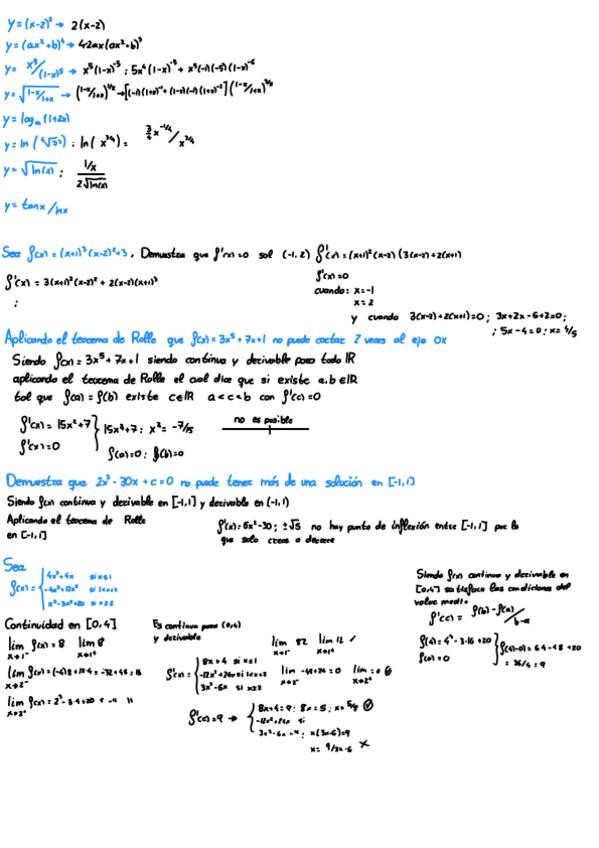 y = (x-2)² → 2(x-2)
y = (ax²+b)⁴ → 4·2ax(ax²+b)³
y = x⁵/(1-x)⁵ → x⁵(1-x)⁻⁵ ; 5x⁴(1-x)⁻⁵ + x⁵(-1)(-5)(1-x)⁻⁶
y = √(1-x/1+x) → (1-x/1+x)^1/2 →
y = log (1+2x)
y = ln( ) ; ln( x^3/4) = 3/4 x^-1/4 / x^3/4
y = √ln(x) ; 1/x / 2√ln(x)
y = tanx/lnx
Sea f(x) = (x+1)³(x-2)²+3. Demuestra que f'(x)=0 sol (-1,2) f'(x) = (x+1)²(x-2)(3(x-2)+2(x+1)
f'(x) = 3(x+1)²(x-2)² + 2(x-2)(x+1)³
f'(x)=0
:
cuando: x=-1
x=2
y cuando 3(x-2)+2(x+1)=0 ; 3x+2x-6+2=0;
; 5x-4=0 ; x=4/5
Aplicando el teorema de Rolle que f(x)=3x⁵+7x+1 no puede cortar 2 veces al eje OX
Siendo f(x)=3x⁵+7x+1 siendo continua y derivable para todo ℝ
aplicando el teorema de Rolle el cual dice que si existe a,b∈ℝ
tal que f(a)=f(b) existe c∈ℝ a<c<b con f'(c)=0
f'(x)= 15x²+7
f'(x)=0
15x²+7 ; x²= -7/15
no es posible
f(a)=0 ; f(b)=0
Demuestra que 2x³-30x+c=0 no puede tener más de una solución en [-1,1]
Siendo f(x) continua y derivable en [-1,1] y derivable en (-1,1)
Aplicando el teorema de Rolle
en [-1,1]
f'(x)=6x²-30 ; ±√5 no hay punto de inflexión entre [-1,1] por lo
que solo crece o decrece
Sea
f(x)= 4x²+4x si x≤1
si 1<x<2
x³-3x²+20 si x≥2
Siendo f(x) continua y derivable en
[0,4] satisface las condiciones del
valor medio
f'(c)= f(b)-f(a)/b-a
Continuidad en [0,4]
lim f(x)=8 lim 8
x→1⁻ x→1⁺
lim f(x)=
x→2⁻
lim f(x)=
x→2⁺
Es continua para (0,4)
y derivable
f'(x)= 8x+4 si x≤1
3x²-6x si x≥2
lim lim 12 ✓
x→1⁻ x→1⁺
lim -48+24=0 lim =0
x→2⁻ x→2⁺
f(4)=4³-3·16+20
f(0)=0
f(4)-f(0)= 64-48+20
= 36/4 = 9
f'(c)=9 → 8x+4=9 ; 8x=5 ; x=5/8
; x(3x-6)=9
x= 9/3x-6 ×